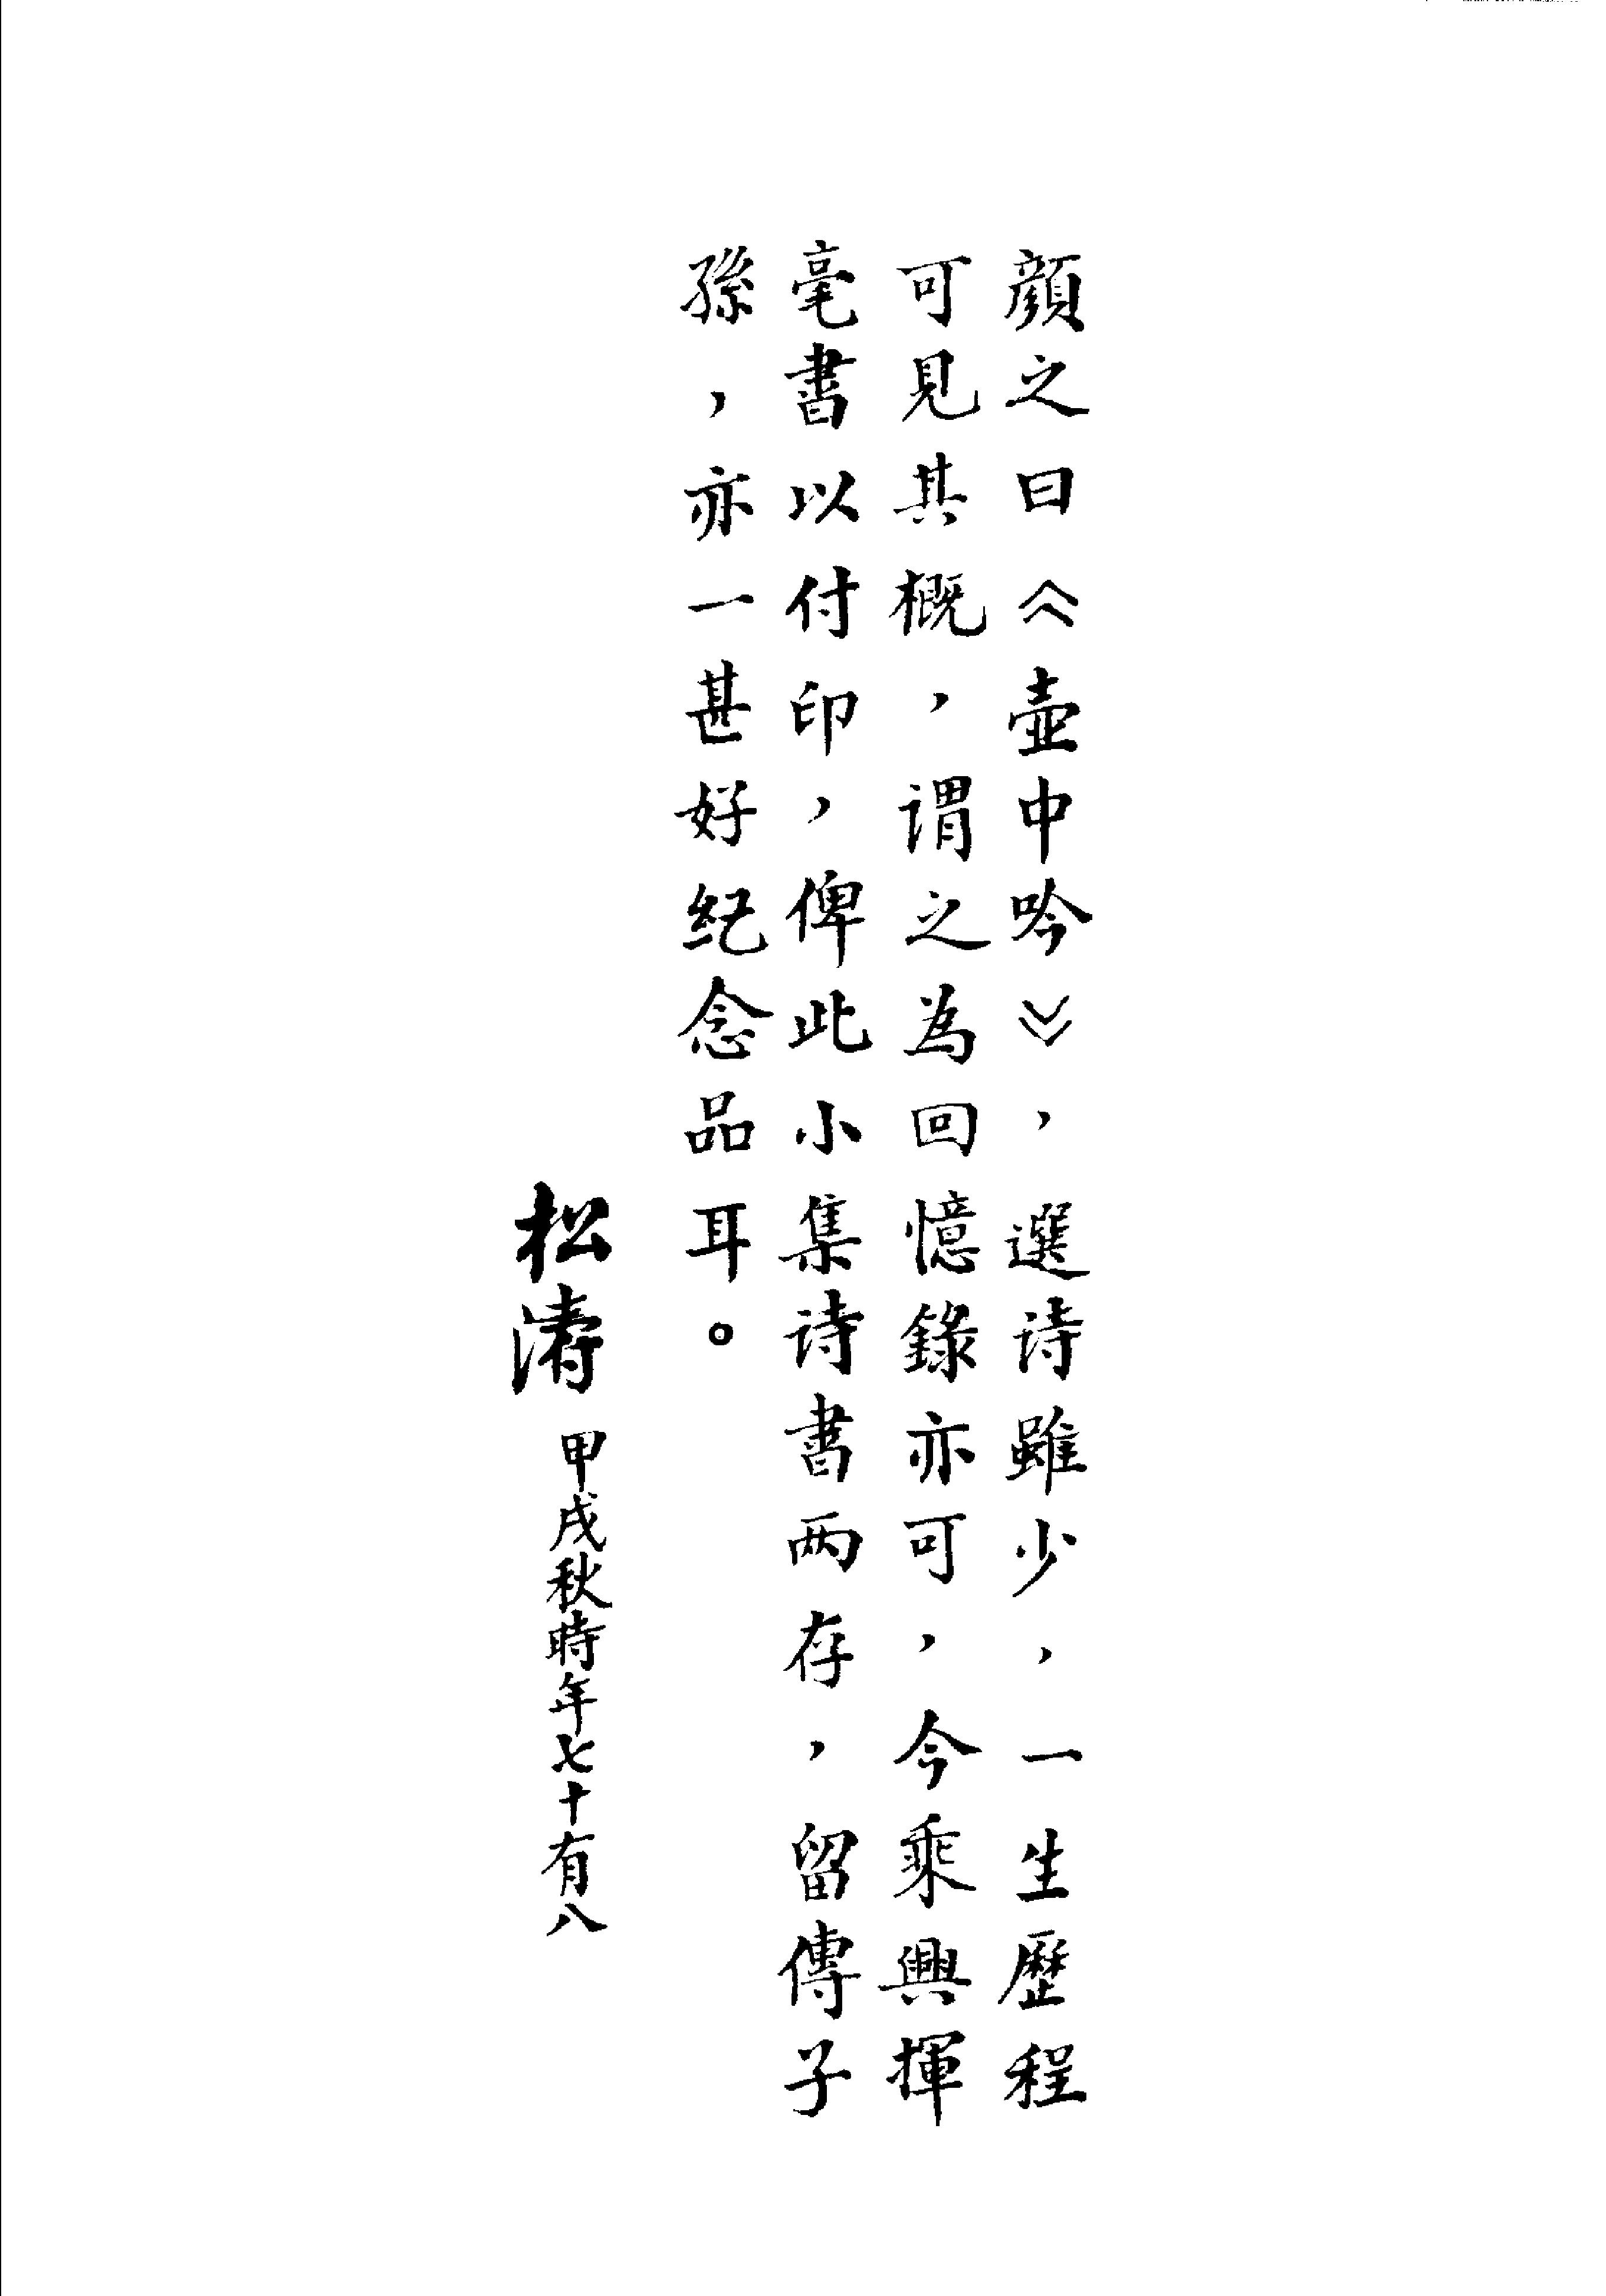 顔之曰《壺中吟》，選诗雖少，一生歷程
可見其概，谓之為回憶錄亦可，今乘興揮
毫書以付印，俾此小集诗書两存，留傳子
孫，亦一甚好纪念品耳。
松涛 甲戌秋時年七十有八